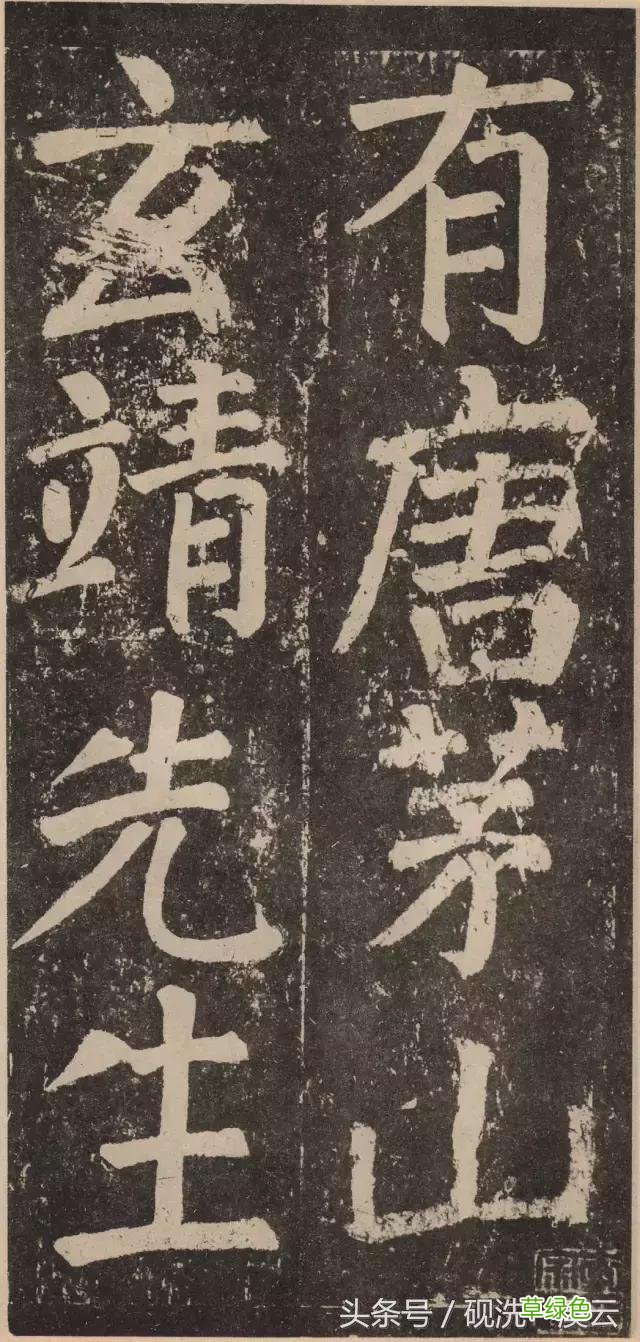 有唐茅山
玄靖先生
头条号／砚洗
草绿色
云